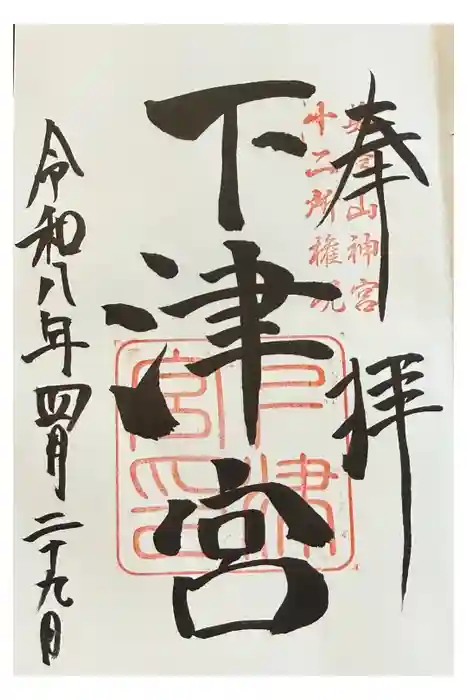 奉拝
山神宮
十二所権現
下津宮
下津宮印
令和八年四月二十九日